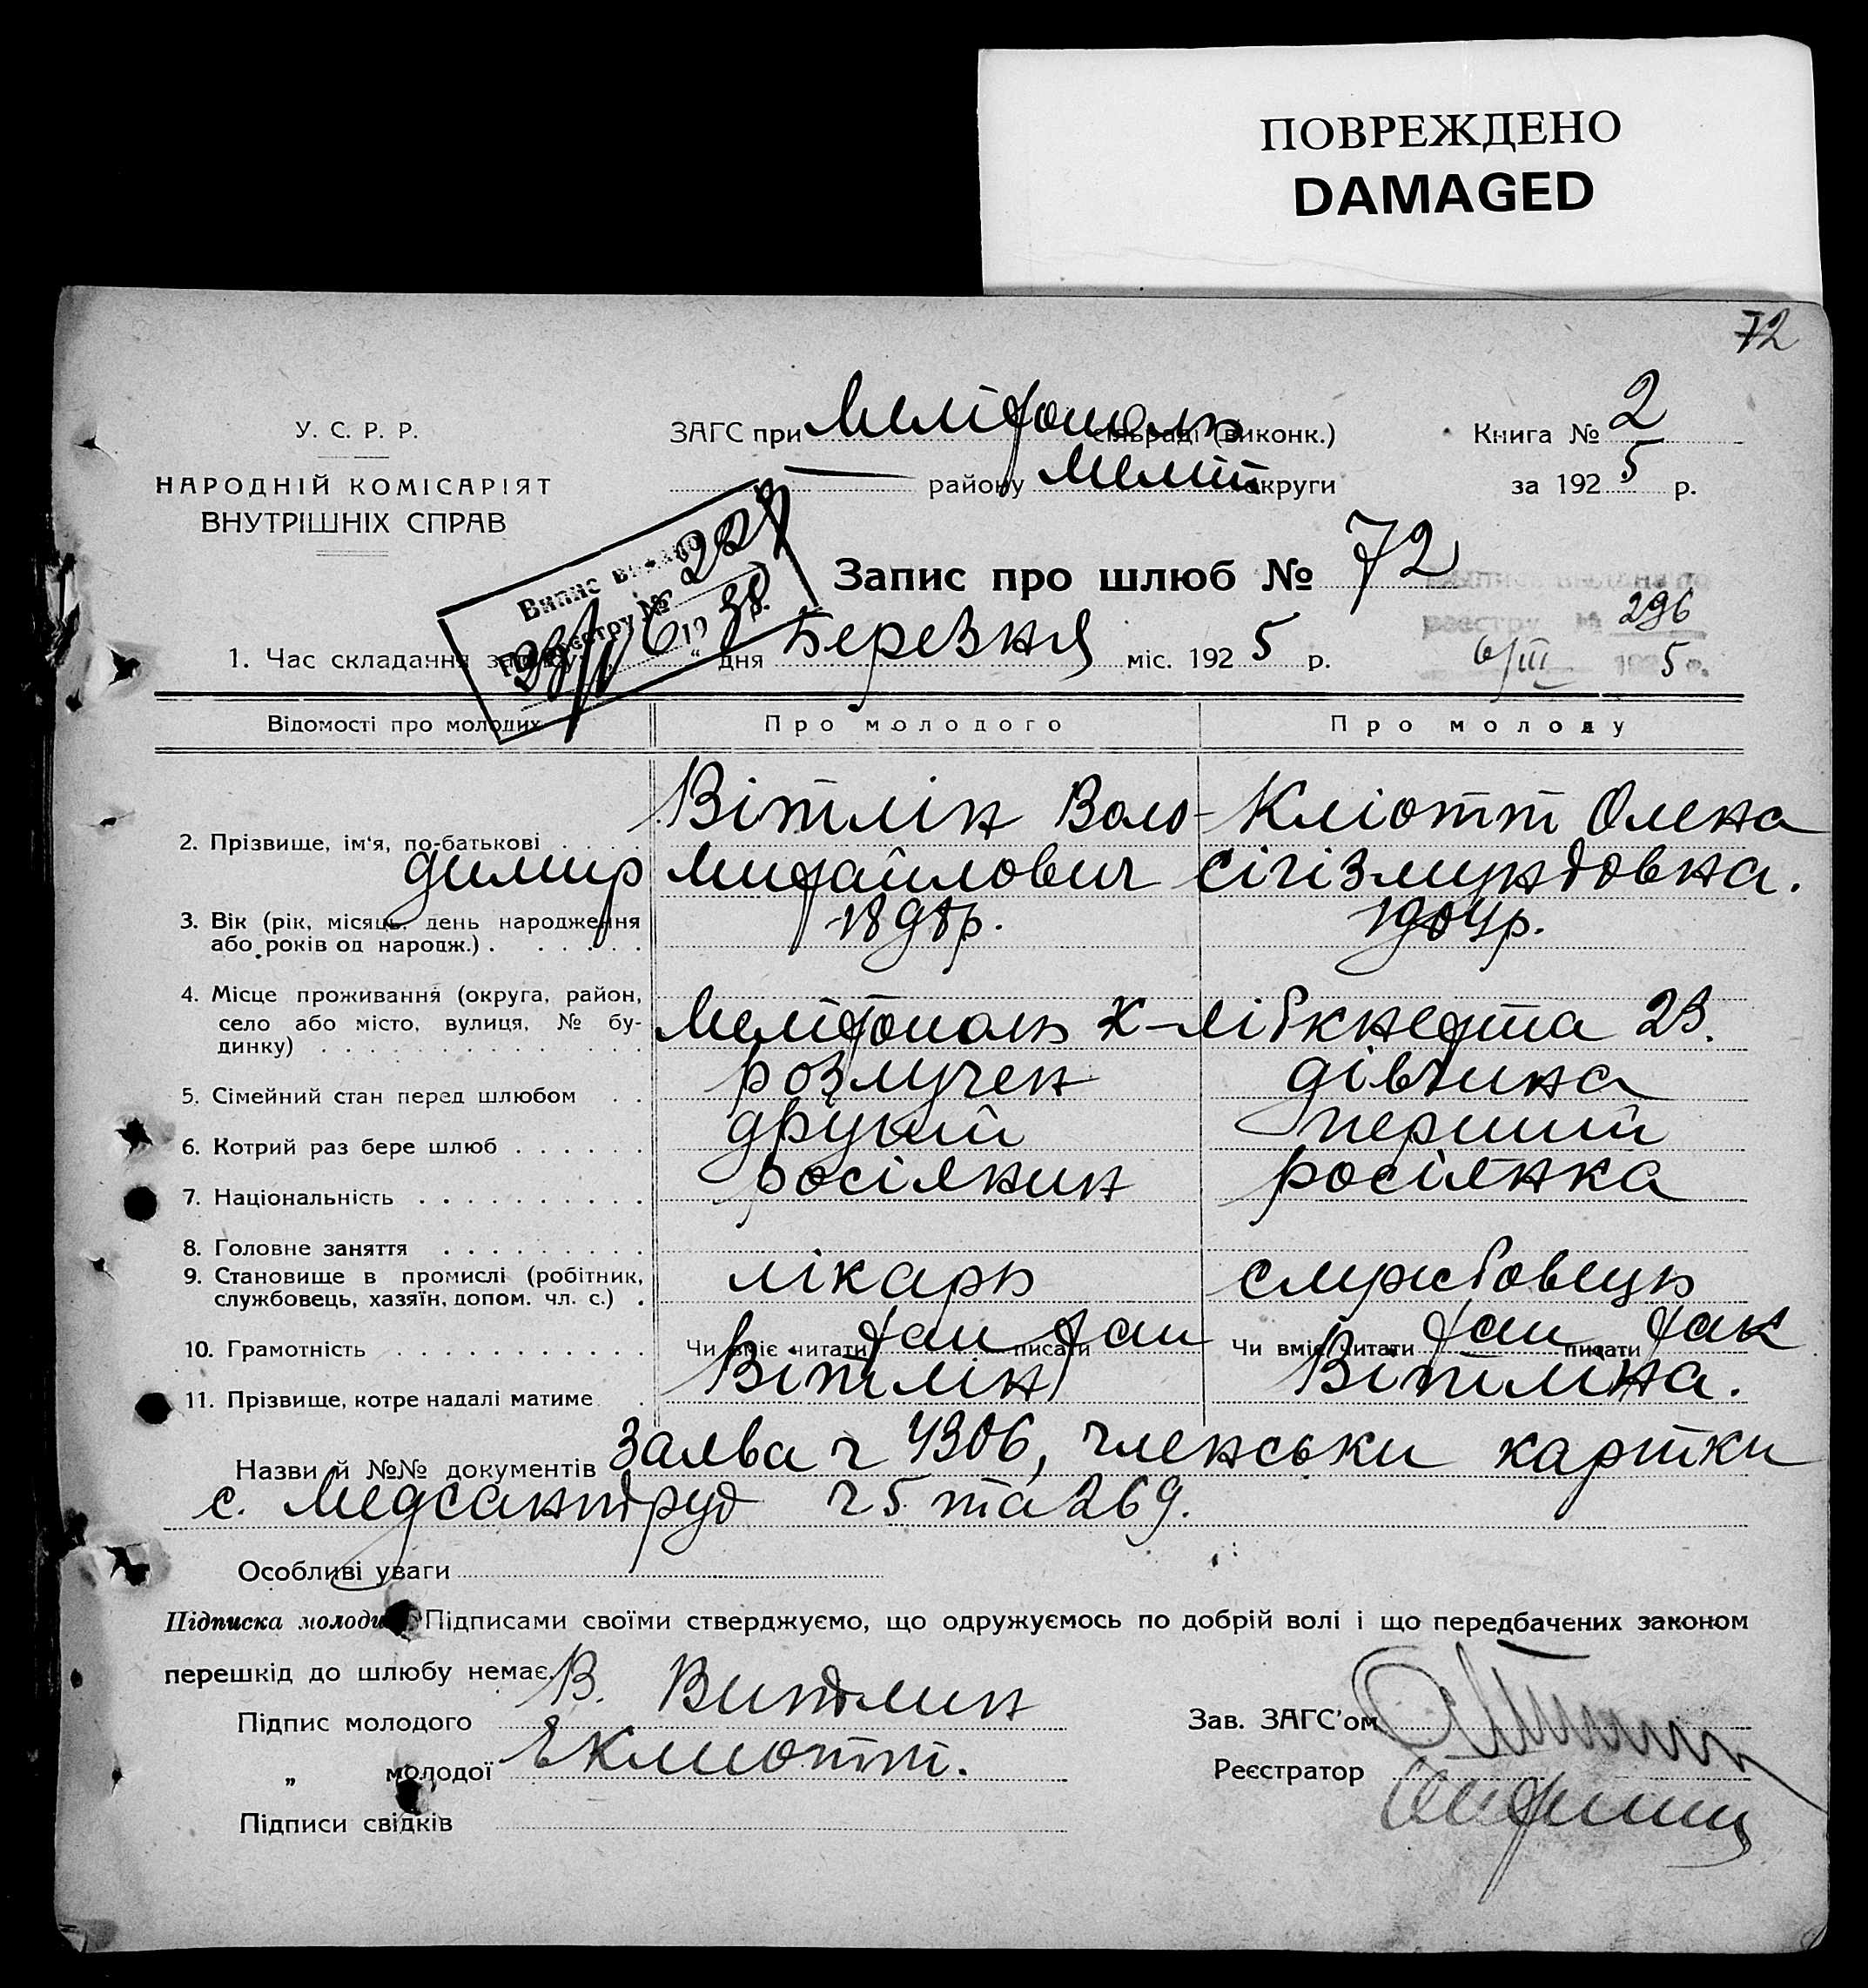 ПОВРЕЖДЕНО
DAMAGED
72
У. С. Р. Р.
НАРОДНІЙ КОМІСАРІЯТ
ВНУТРІШНІХ СПРАВ
ЗАГС при Мелітополь сільраді (виконк.)
району Меліт. округи
Книга № 2
за 192 5 р.
Випис видано
реєстру №
19 38 р.
Запис про шлюб № 72
реєстру № 296
6/III 1925 р.
1. Час складання запису: 6 " дня Березня міс. 192 5 р.
Відомості про молодих Про молодого Про молоду
2. Прізвище, ім'я, по-батькові . . . . Вітлін Воло- Кліотт Олена
димир Михайлович Сігізмундовна.
3. Вік (рік, місяць, день народження 1898р. 1904р.
або років од народж.) . . . . . .
4. Місце проживання (округа, район,
село або місто, вулиця, № бу- Мелітополь К-лібкнехта 23.
динку) . . . . . . . . . . . . . .
5. Сімейний стан перед шлюбом . . розлучен дівчина
6. Котрий раз бере шлюб . . . . . . другий перший
7. Національність . . . . . . . . . . росіянин росіянка
8. Головне заняття . . . . . . . . .
9. Становище в промислі (робітник, лікарь службовець
службовець, хазяїн, допом. чл. с.) .
10. Грамотність . . . . . . . . . . . Чи вміє читати так писати так Чи вміє читати так писати так
11. Прізвище, котре надалі матиме . Вітлін Вітліна.
Назви й №№ документів Заява ч 4306, членськи картки
с. Медсантруд ч 5 та 269.
Особливі уваги
Підписка молодих Підписами своїми стверджуємо, що одружуємось по добрій волі і що передбачених законом
перешкід до шлюбу немає.
Підпис молодого В. Витлин
Зав. ЗАГС'ом
" молодої Е Клиотт.
Реєстратор
Підписи свідків